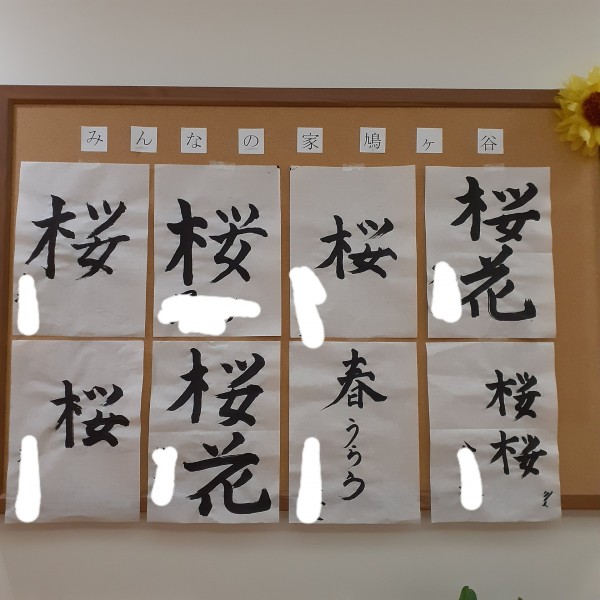 みんなの家鳩ヶ谷
桜
桜
桜
桜花
桜
桜花
春うらら
桜桜